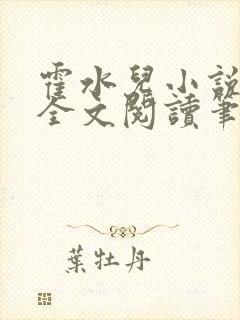 霍水兒小說
全文閱讀筆
葉牡丹